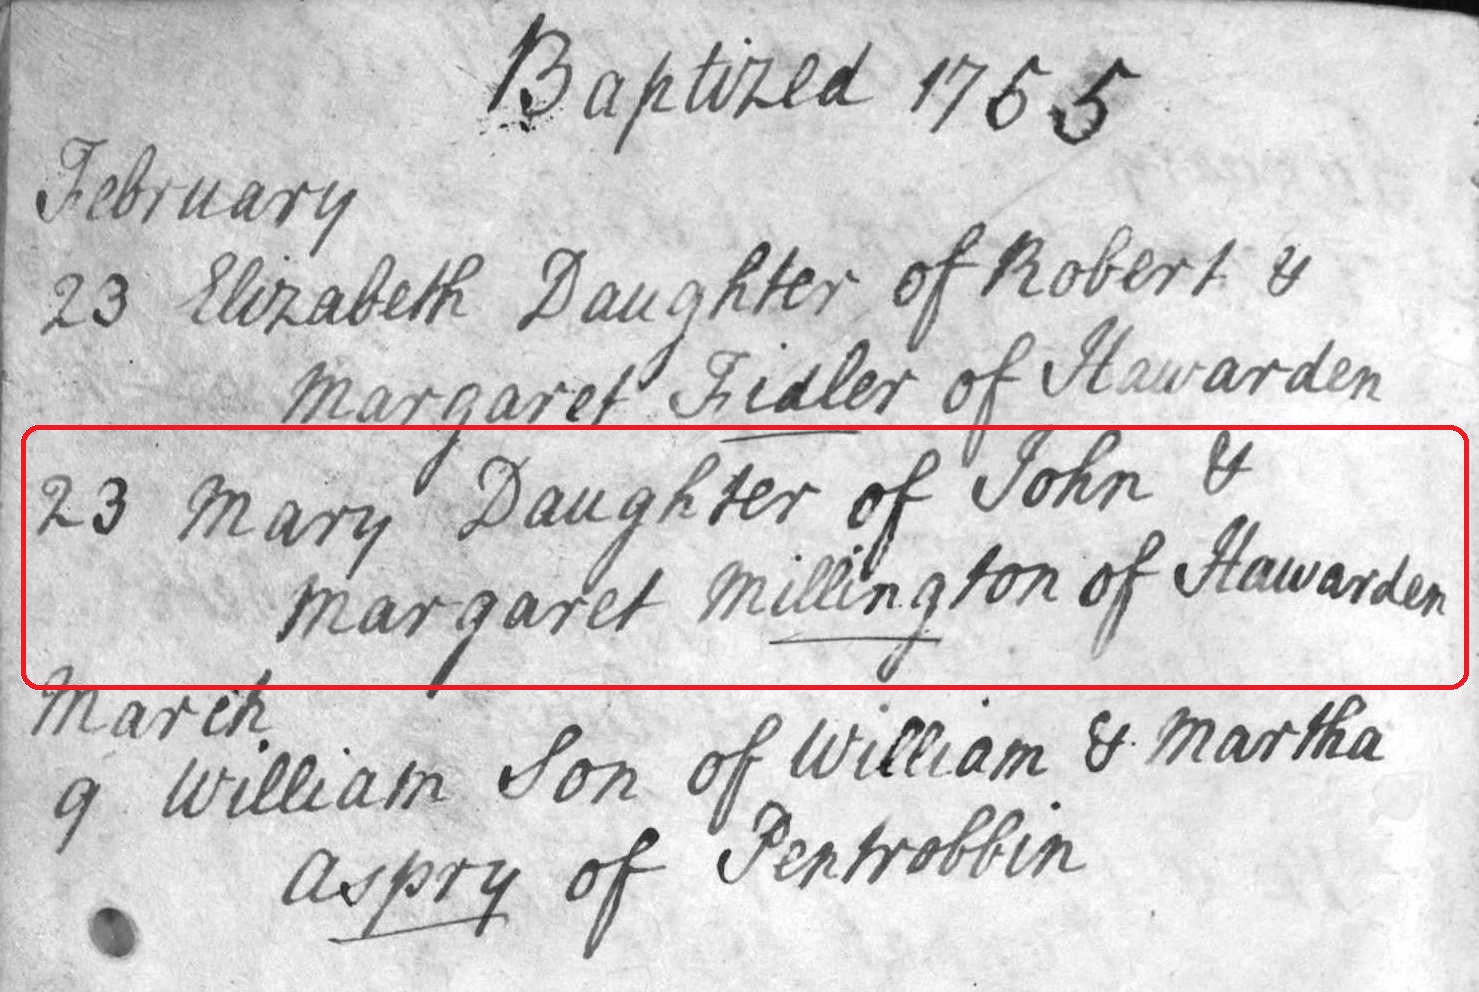 Baptized 1755
February
23 Elizabeth Daughter of Robert &
Margaret Fidler of Hawarden
23 Mary Daughter of John &
Margaret Millington of Hawarden
March
9 William Son of William & Martha
Aspry of Pentrobbin